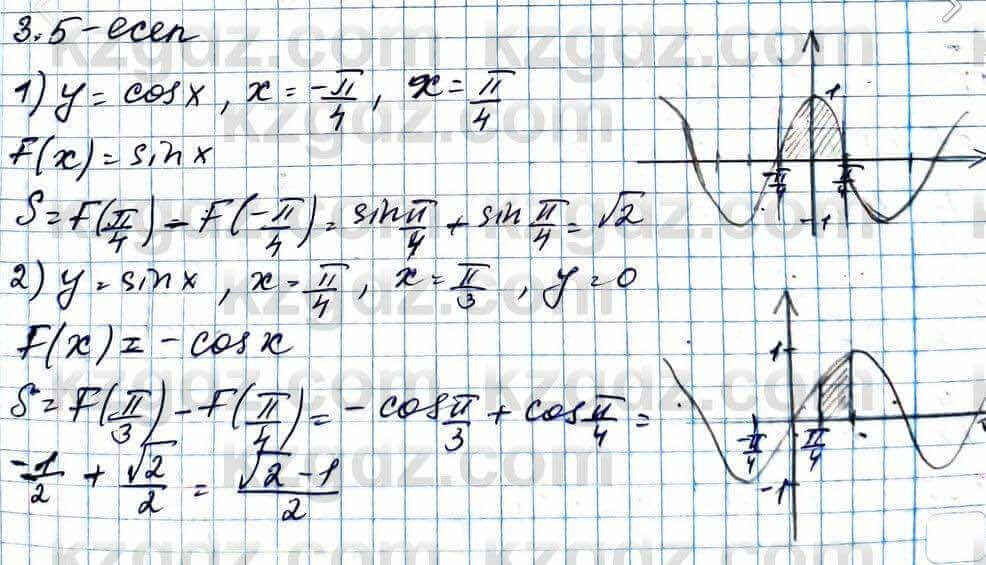 3.5-есеп
1) y = cos x, x = -π/4, x = π/4
F(x) = sin x
S = F(π/4) - F(-π/4) = sin π/4 + sin π/4 = √2
2) y = sin x, x = π/4, x = π/3, y = 0
F(x) = - cos x
S = F(π/3) - F(π/4) = - cos π/3 + cos π/4 =
-1/2 + √2/2 = (√2 - 1)/2
1
-π/4 π/4
-1
1
-π/4 π/4
-1
kzgdz.com